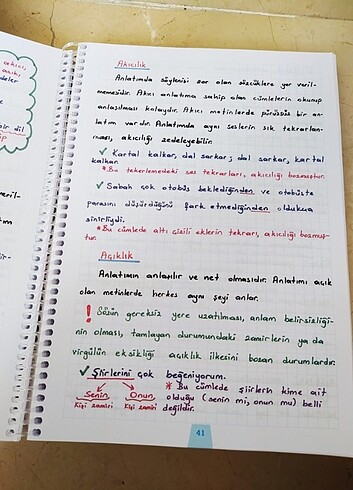 akıcı,
açık,
deler
bir dil
ıp
eril-
atım
ir-
Akıcılık
Anlatımda söylenişi zor olan sözcüklere yer veril-
memesidir. Akıcı anlatıma sahip olan cümlelerin okunup
anlaşılması kolaydır. Akıcı metinlerde pürüssüz bir an-
latım vardır. Anlatımda aynı seslerin sık tekrarlan-
ması, akıcılığı zedeleyebilir.
✓ Kartal kalkar, dal sarkar; dal sarkar, kartal
kalkar.
* Bu tekerlemedeki ses tekrarları, akıcılığı bozmuştur.
✓ Sabah çok otobüs beklediğinden ve otobüste
parasını düşürdüğünü fark etmediğinden oldukça
sinirliydi.
* Bu cümlede altı çizili eklerin tekrarı, akıcılığı bozmuş-
tur.
Açıklık
Anlatımın anlaşılır ve net olmasıdır. Anlatımı açık
olan metinlerde herkes aynı şeyi anlar.
! Sözün gereksiz yere uzatılması, anlam belirsizliği-
nin olması, tamlayan durumundaki zamirlerin ya da
virgülün eksikliği açıklık ilkesini bozan durumlardır.
✓ Şiirlerini çok beğeniyorum.
Senin Onun * Bu cümlede şiirlerin kime ait
Kişi zamiri Kişi zamiri olduğu (senin mi, onun mu) belli
değildir.
41